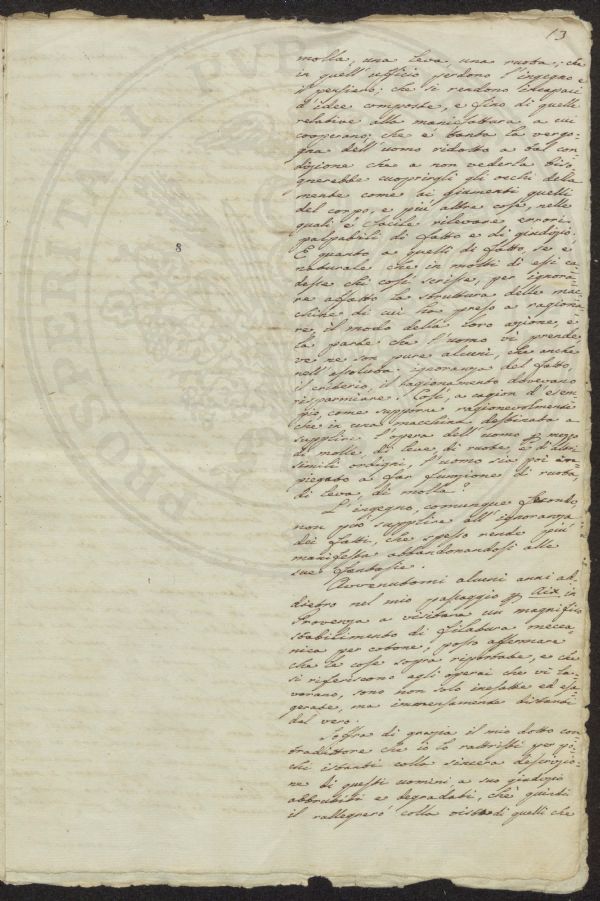 13
molla, una leva, una ruota; che
in quell'uffizio perdono l'ingegno e
il pensiero; che si rendono incapaci
d'idee composte, e fino di quelle
relative alla manifattura a cui
cooperano; che è tanta la vergo=
gna dell'uomo ridotto a tal con
dizione che a non vederla biso
gnerebbe cuoprirgli gli occhi della
mente come ai giumenti quelli
del corpo, e più altre cose, nelle
quali è facile rilevare errori
palpabili di fatto e di giudizio.
E quanto a quelli di fatto, se è
naturale che in molti di essi ca=
desse chi così scrisse, per ignora=
re affatto la struttura delle mac=
chine di cui ha preso a ragiona=
re, il modo della loro azione, e
la parte che l'uomo vi prende,
ve ne son pure alcuni, che anche
nell'assoluta ignoranza del fatto,
il criterio, il ragionamento dovevano
risparmiare. Così, a cagion d'esem=
pio, come supporre ragionevolmente
che in una macchina destinata a
supplire l'opera dell'uomo p mezzo
di molle, di leve, di ruote, e d'altri
simili ordigni, l'uomo sia poi im=
piegato a far funzione di ruota,
di leva, di molla?
L'ingegno, comunque fecondo,
non può supplire all'ignoranza
dei fatti, che spesso rende più
manifesta abbandonandosi alle
sue fantasie.
Avvenutomi alcuni anni ad
dietro nel mio passaggio p Aix in
Provenza a visitare un magnifico
stabilimento di filatura mecca=
nica per cotone, posso affermare
che le cose sopra riportate, e che
si riferiscono agli operai che vi la=
vorano, sono non solo inesatte ed esa=
gerate, ma immensamente distanti
dal vero.
Soffra di grazia il mio dotto con
tradittore che io lo rattristi per po=
chi istanti colla sincera descrizio=
ne di questi uomini a suo giudizio
abbrutiti e degradati, chè quindi
il rallegrerò colla vista di quelli che
8
PROSPERITATI PUB